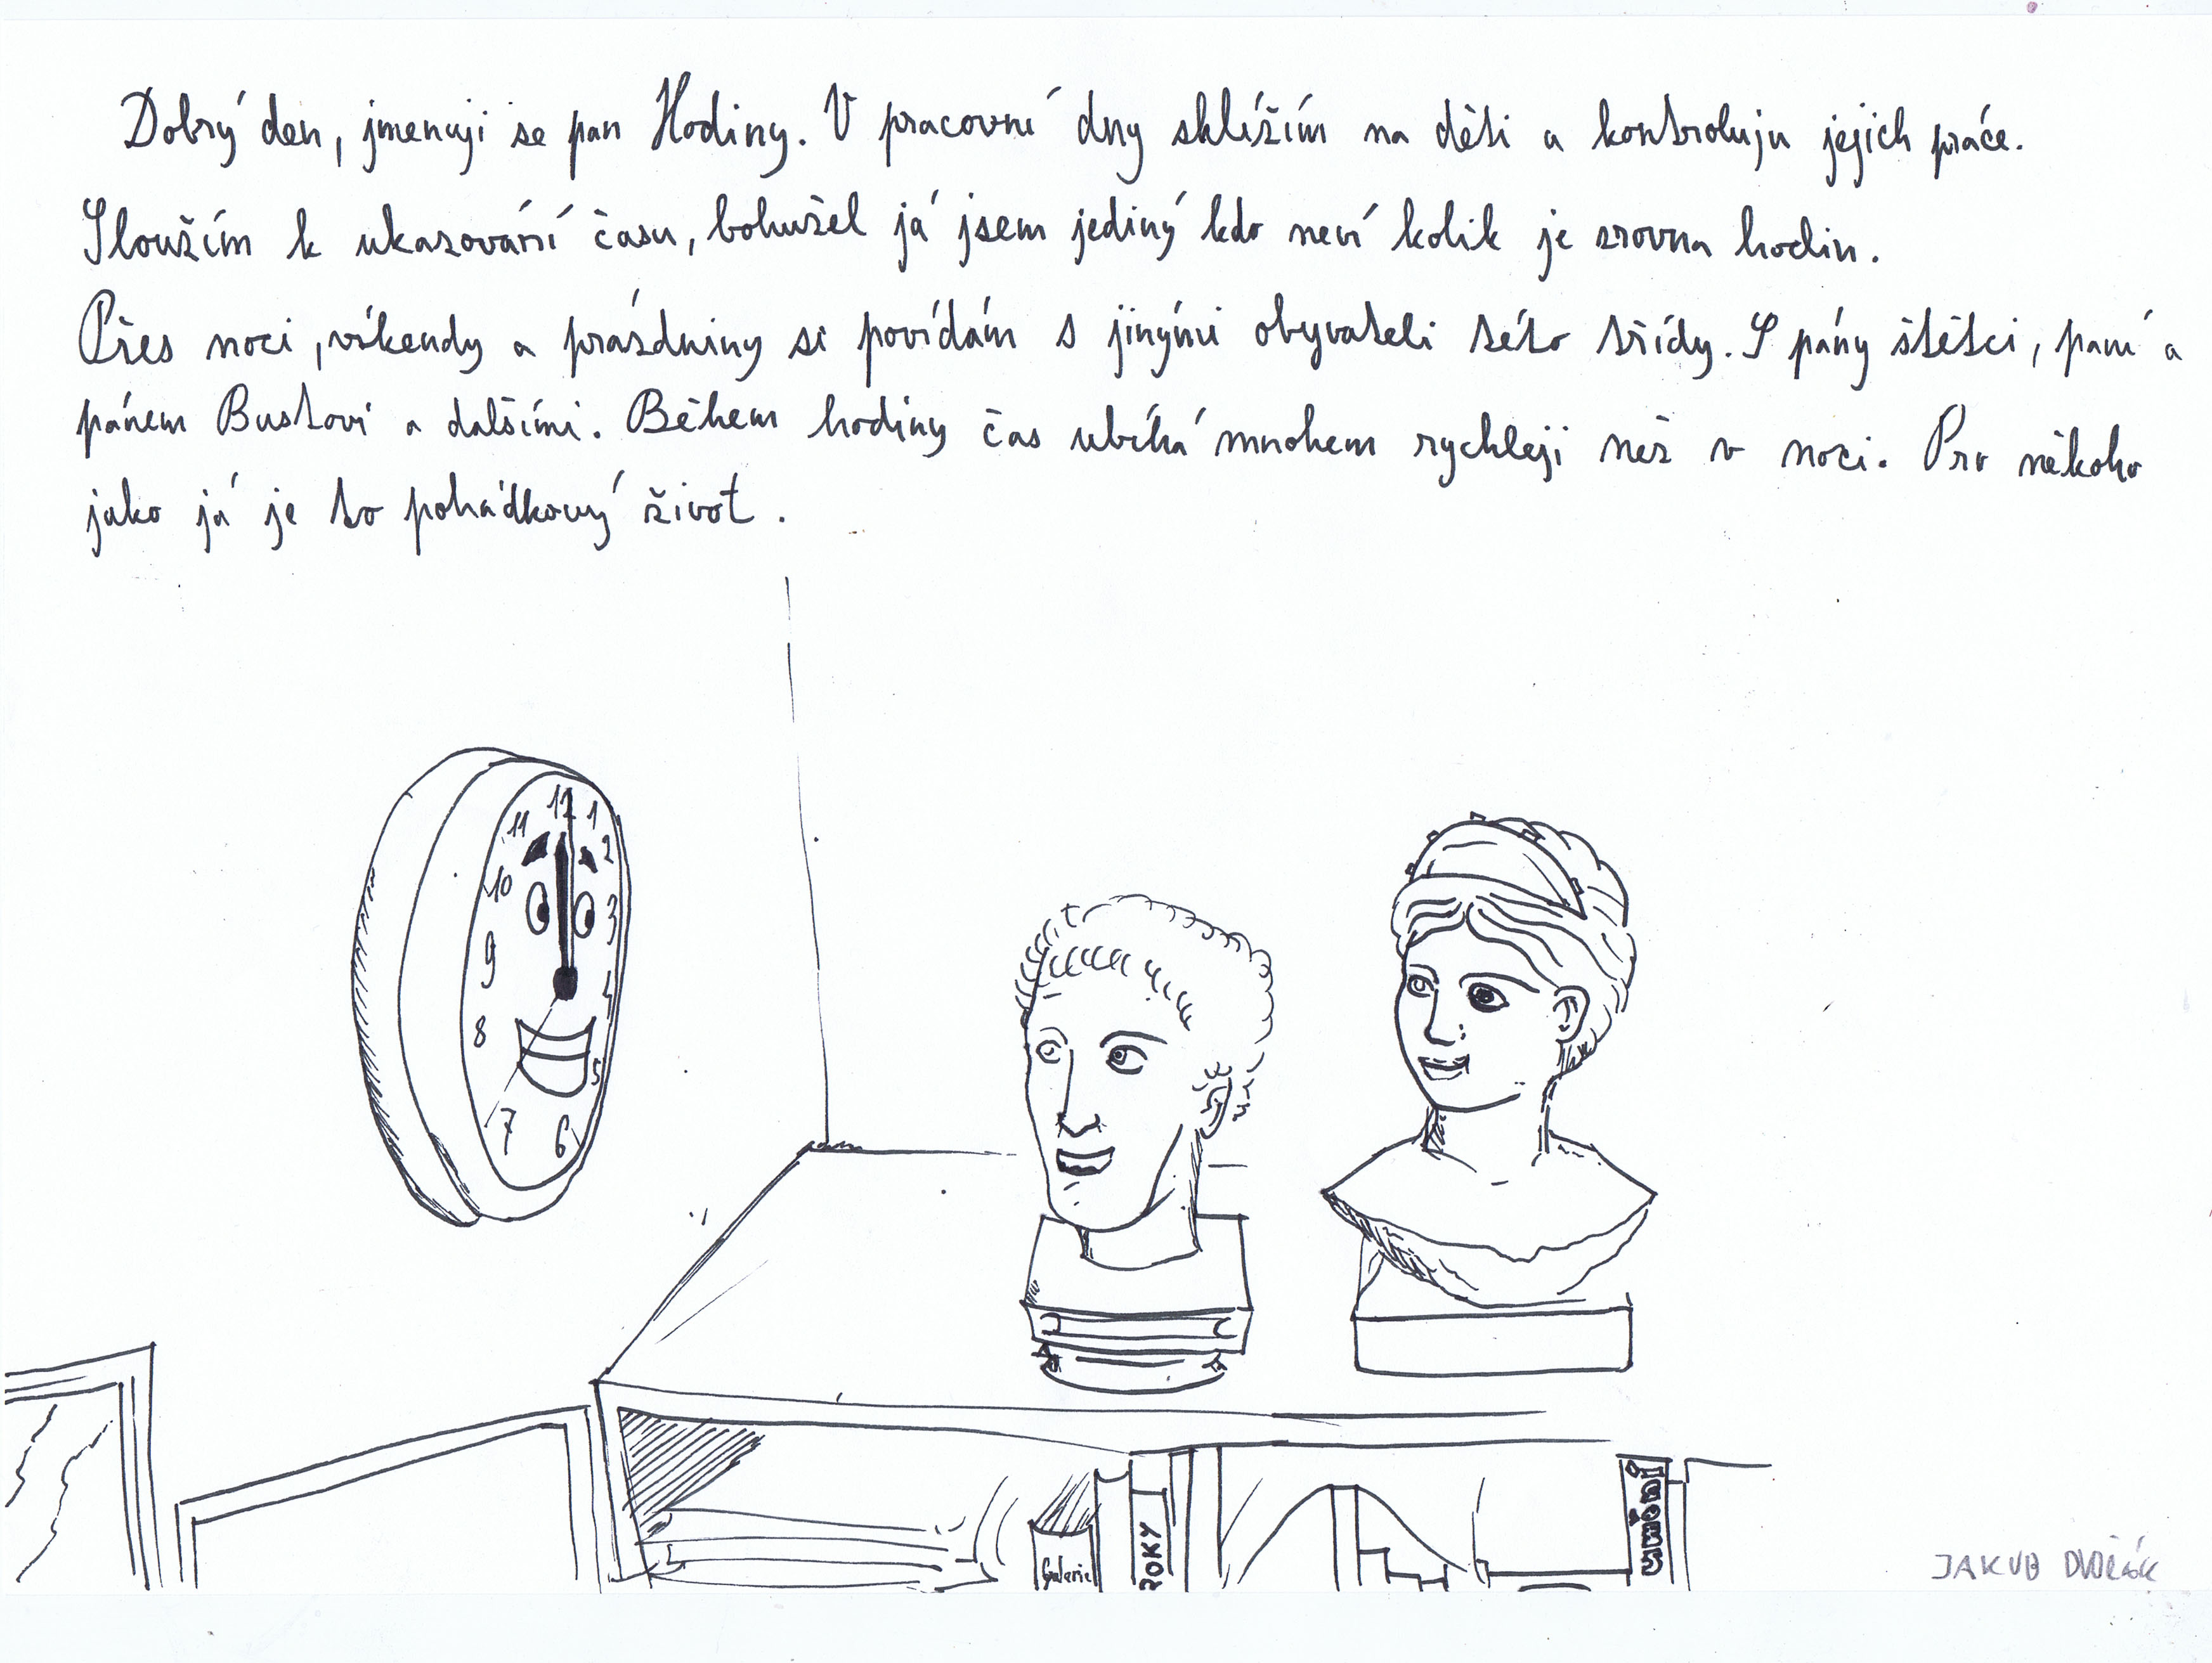 Dobrý den, jmenuji se pan Hodiny. V pracovní dny shlížím na děti a kontroluju jejich práce.
Sloužím k ukazování času, bohužel já jsem jediný kdo neví kolik je zrovna hodin.
Přes noci, víkendy a prázdniny si povídám s jinými obyvateli této třídy. S pány štětci, paní a
pánem Bustovi a dalšími. Během hodiny čas ubíhá mnohem rychleji než v noci. Pro někoho
jako já je to pohádkový život.
12
11
1
2
10
3
9
4
8
5
7
6
Galerie
ROKY
umění
JAKUB DVOŘÁK